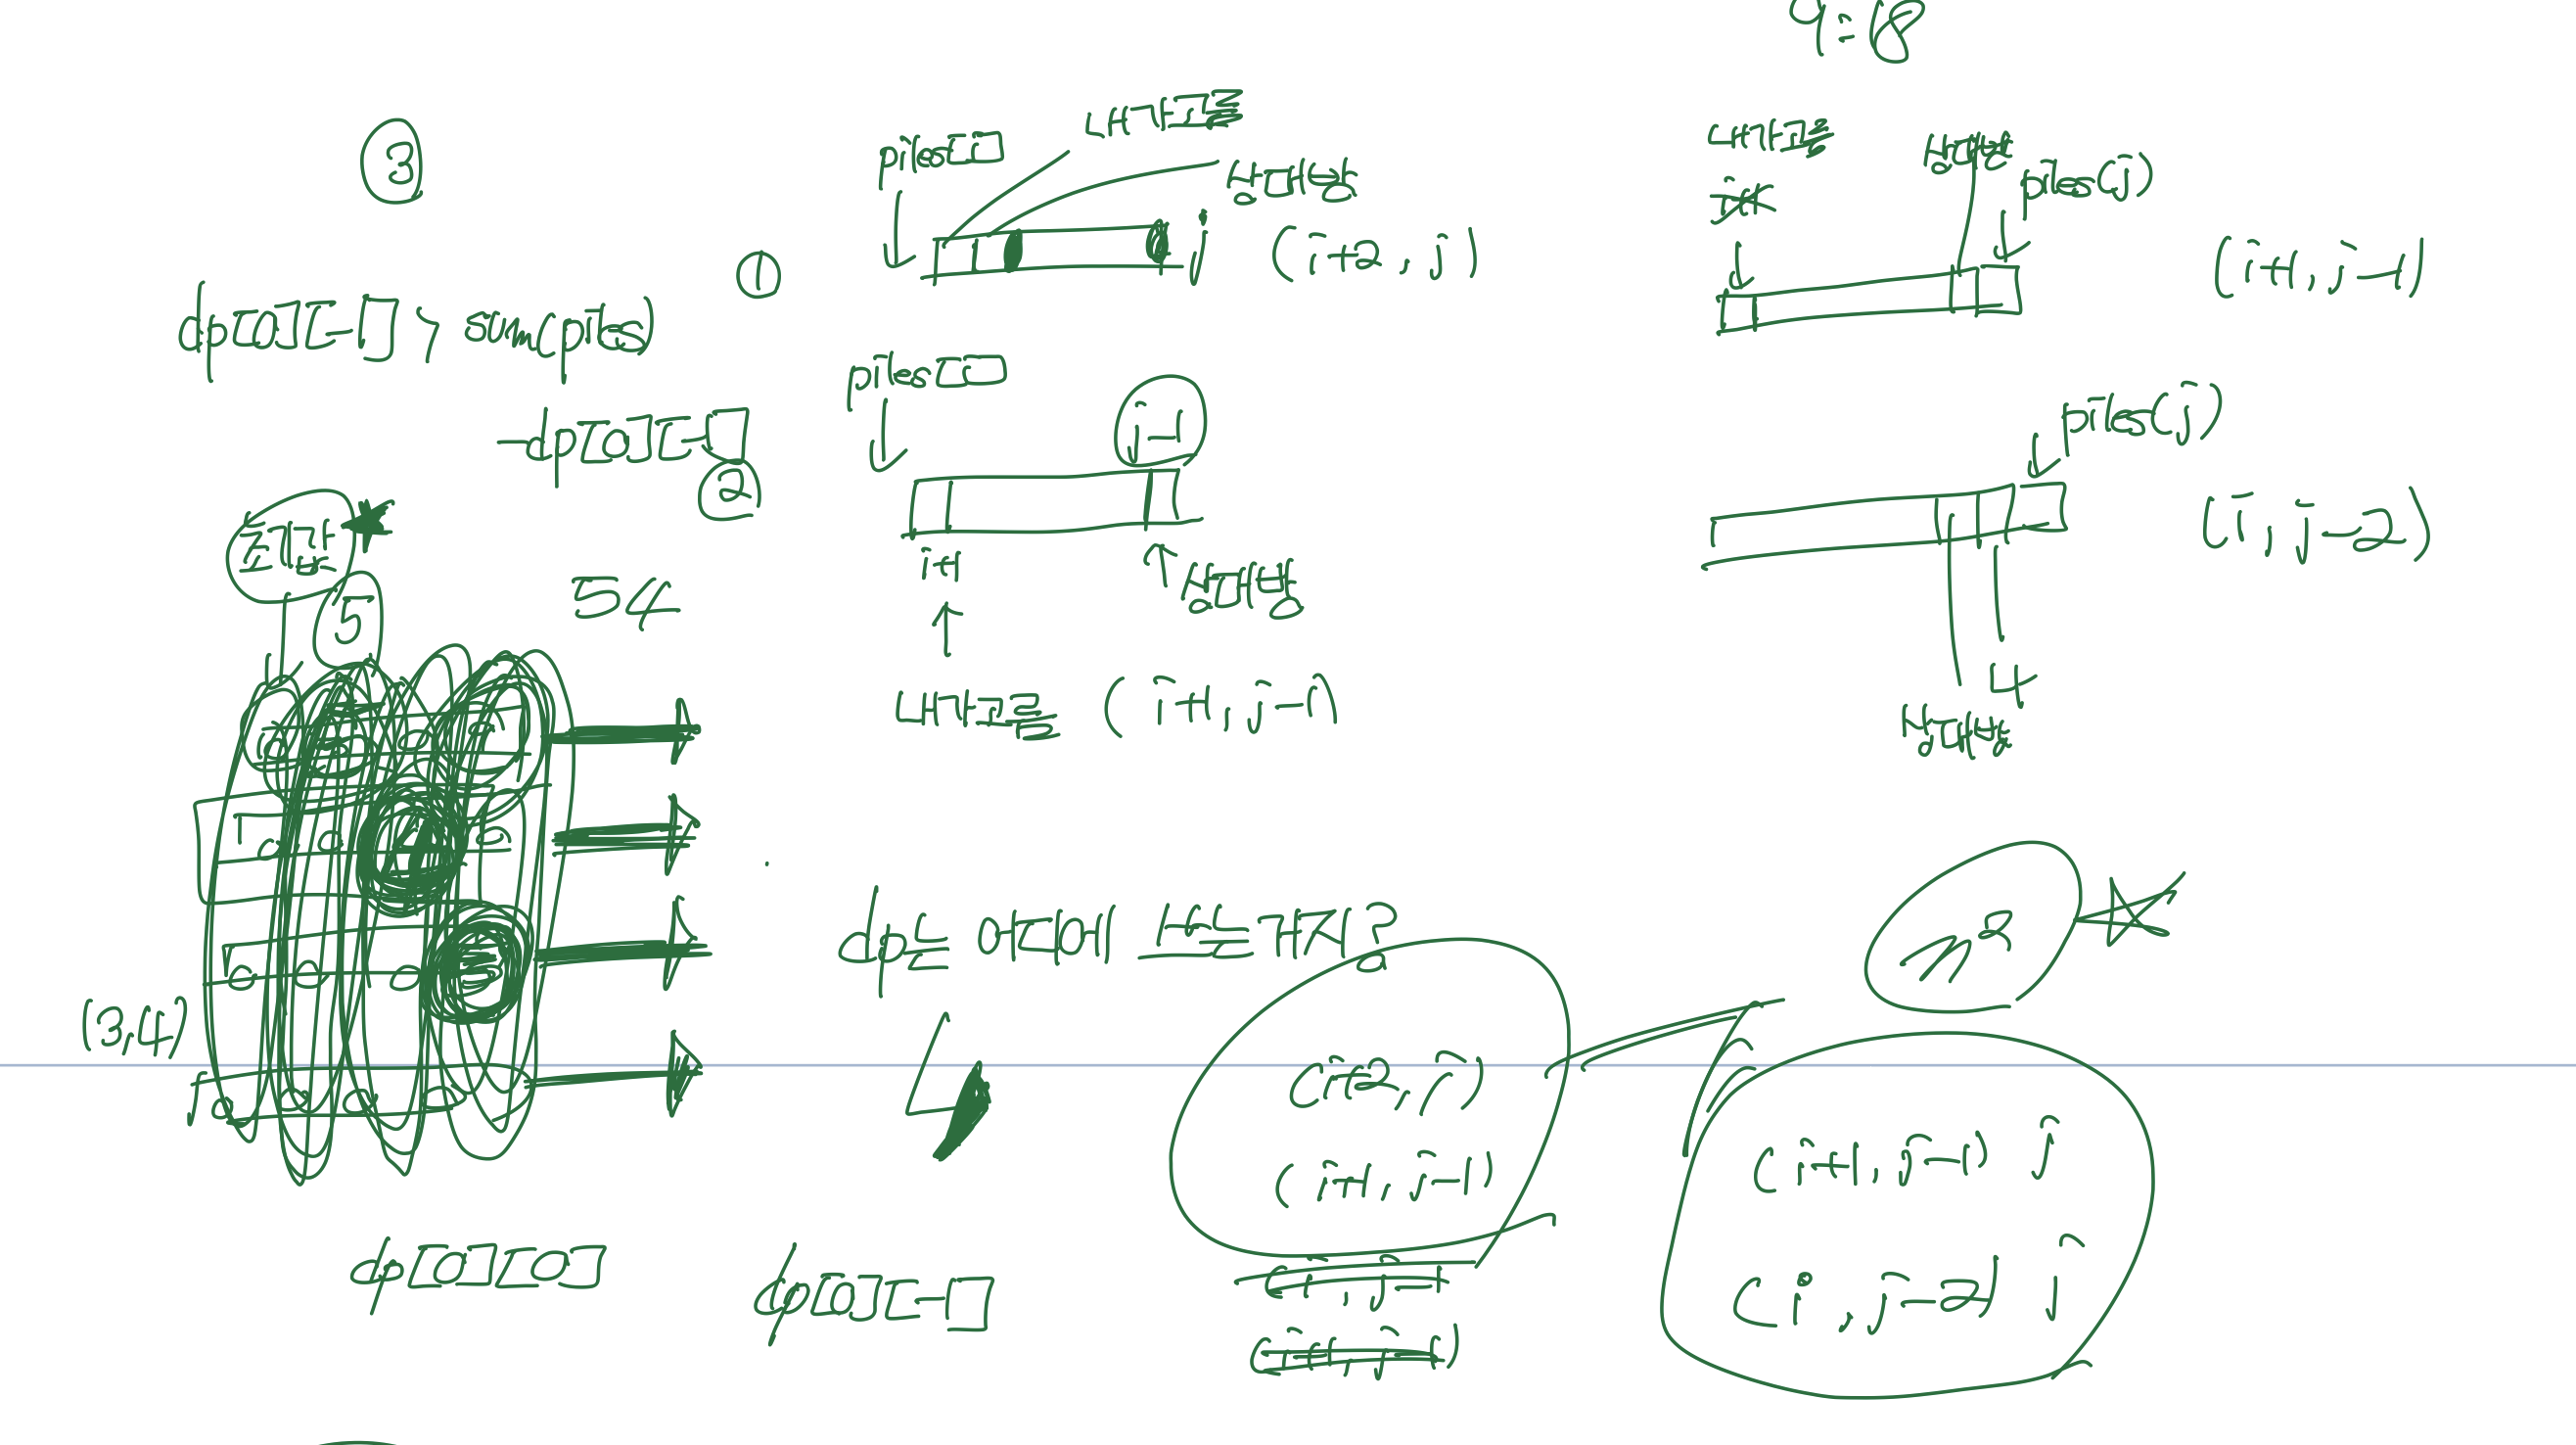 9:18
③
dp[0][-1] > sum(piles)
-dp[0][-1]
①
piles[i]
내가고름
상대방
j
(i+2, j)
내가고름
상대방
piles(j)
(i+1, j-1)
②
piles[i]
j-1
i+1
상대방
내가고름
(i+1, j-1)
piles(j)
(i, j-2)
상대방
나
초기값
5
54
(3,4)
dp는 어디에 쓰는가지?
n²
(i+2, j)
(i+1, j-1)
(i+1, j-1) j
(i, j-2) j
dp[0][0]
dp[0][-1]